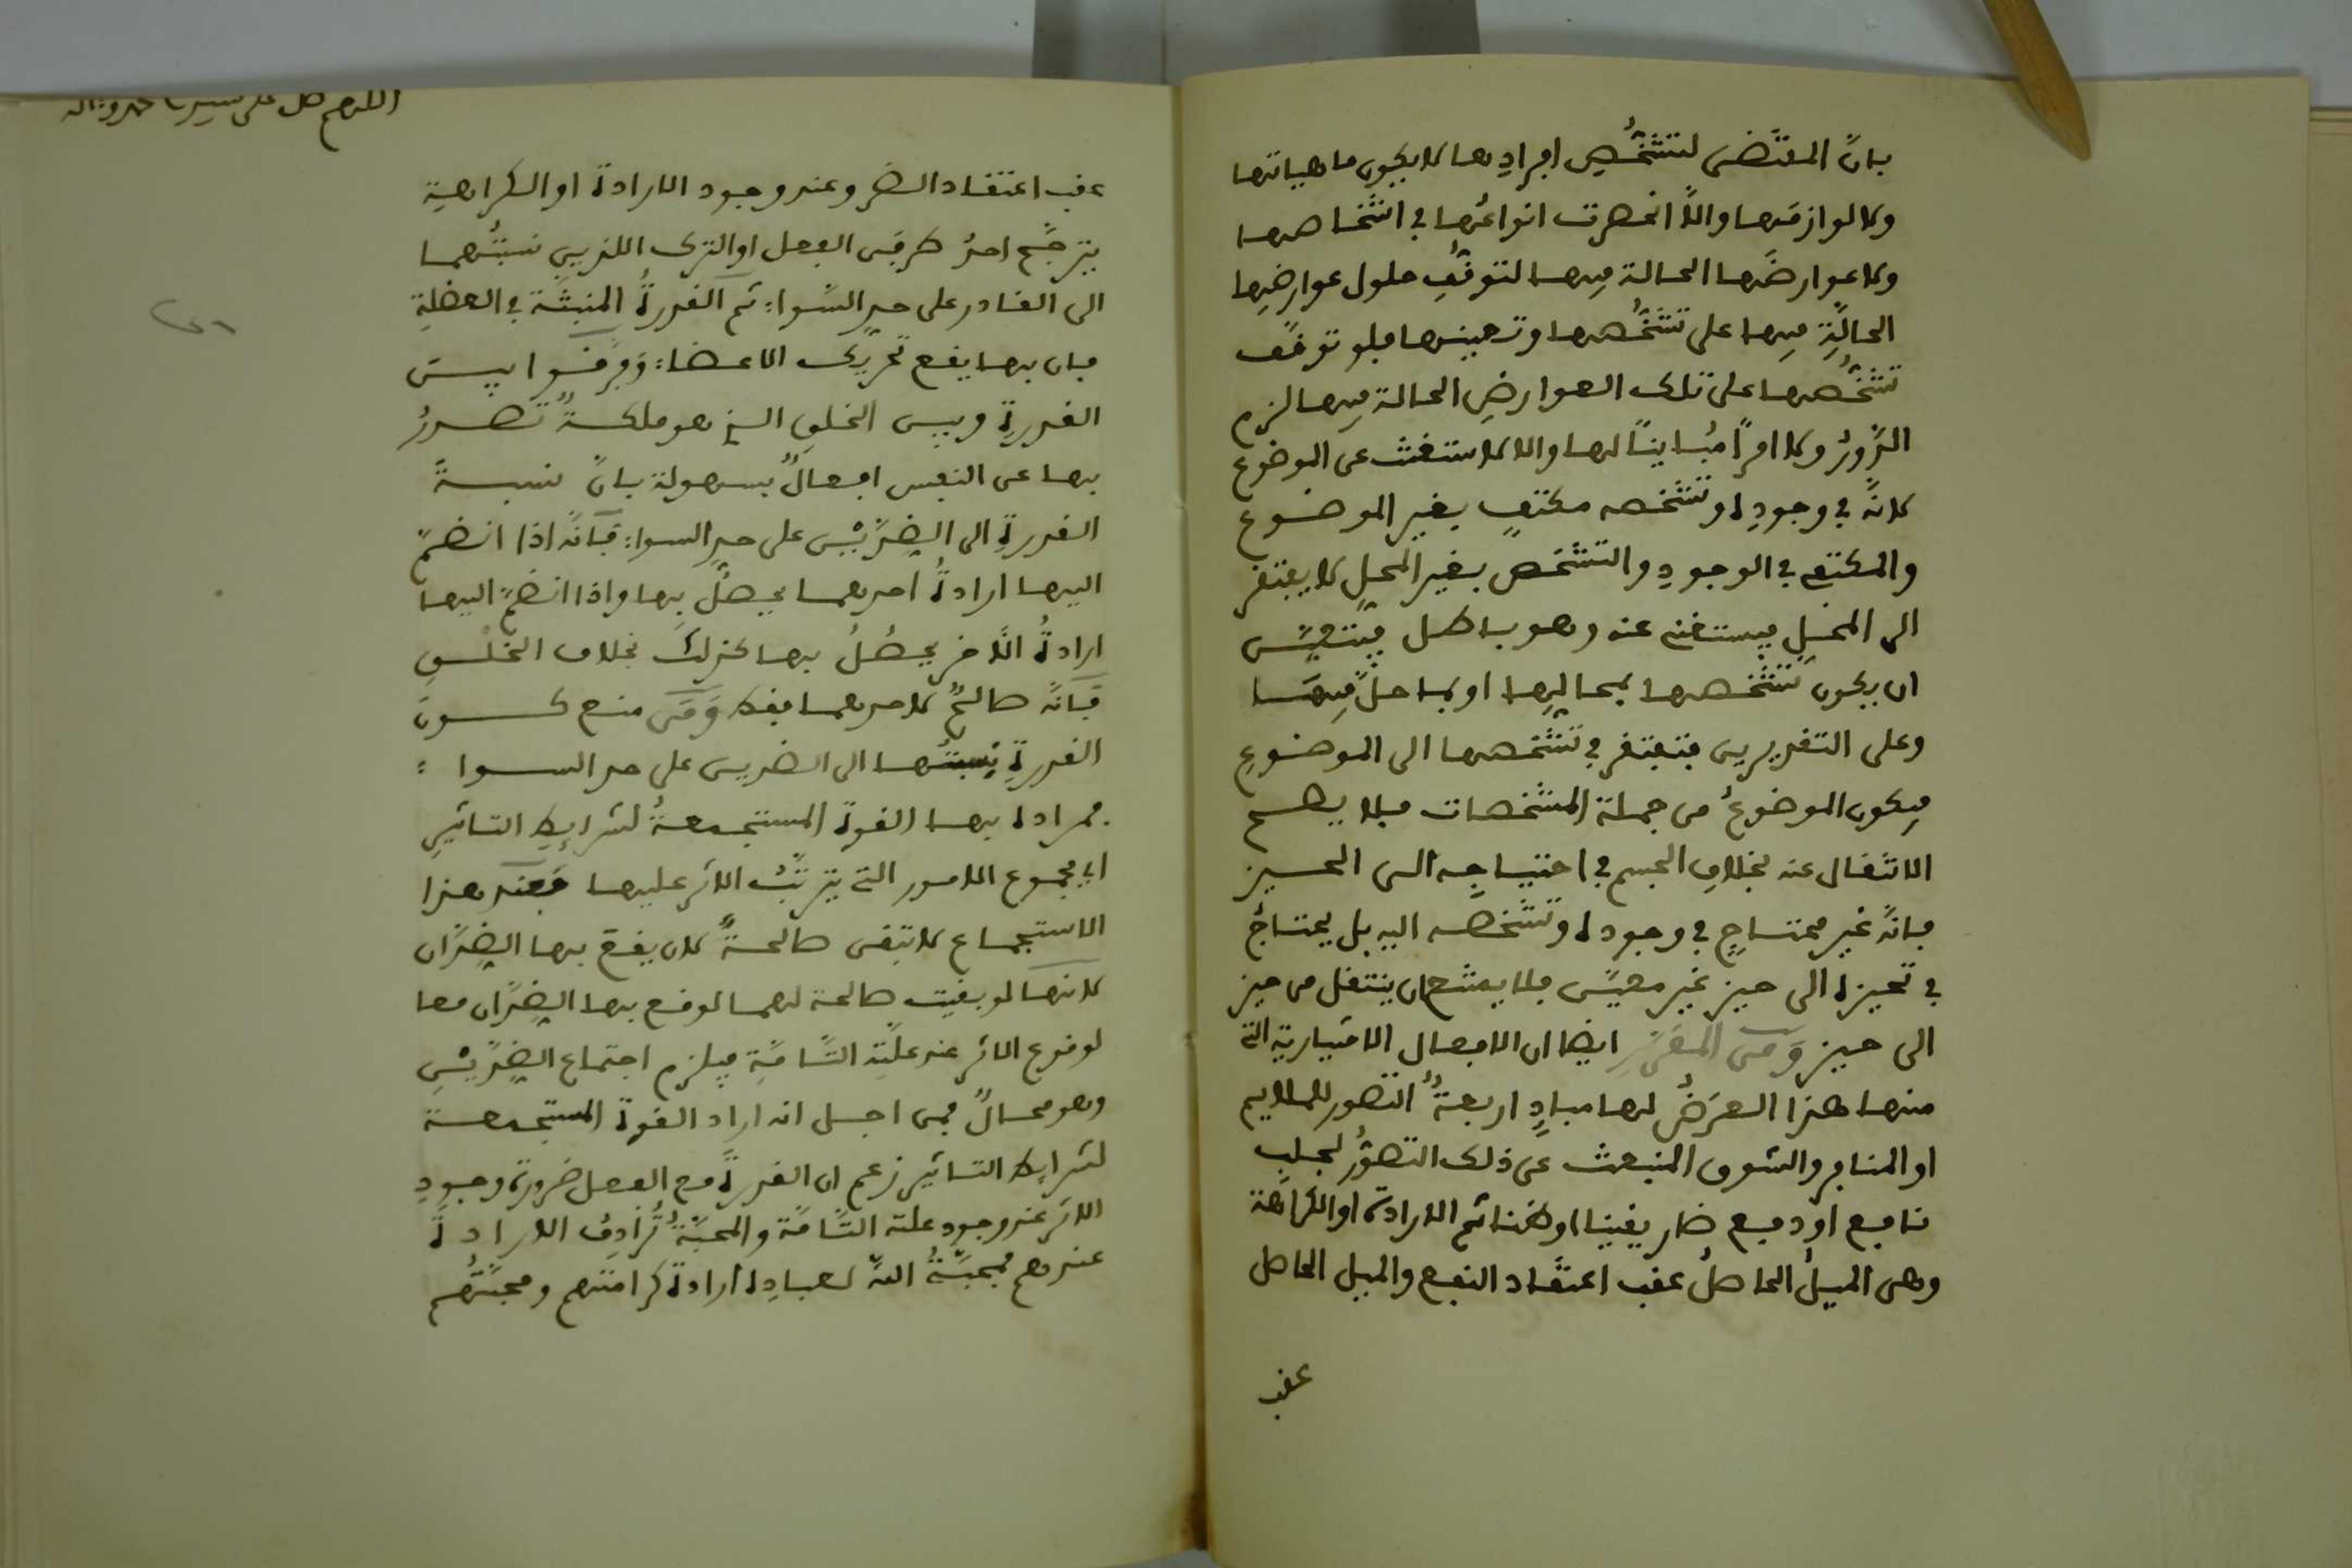 بانّ المقتضى لتشخُّصِ افرادِها لا يكون ماهياتها
ولا لوازمَها والّا انحصرت انواعُها في اشخاصها
ولا عوارضَها الحالة فيها لتوقُّفِ حلول عوارضِها
الحالّةِ فيها على تشخُّصها وتعينها فلو توقّف
تشخُّصها على تلك العوارضِ الحالة فيها لزم
الدّورُ ولا امرًا مُباينًا لها والا لاستغنت عن الموضوع
لانّه في وجودِه وتشخصه مكتفٍ بغير الموضوع
والمكتفي في الوجودِ والتشخص بغير المحلِ لا يفتقر
الى المحلِ فيستغنى عنه وهو باطل فيتعيّن
ان يكون تشخصها بمحالِها او بما حلّ فيهَا
وعلى التقديرين فتفتقر في تشخصها الى الموضوعِ
فيكون الموضوعُ من جملة المشخصات فلا يصح
الانتقال عنه بخلافِ الجسم في احتياجِه الى الحيز
فانّه غير محتاجٍ في وجوده وتشخصه اليه بل يحتاجُ
في تحيزه الى حيز غير معيّن فلا يمتنع ان ينتقل من حيز
الى حيز وَمن المقرّرِ ايضا ان الافعال الاختيارية التي
منها هذا العرَضُ لها مبادٍ اربعةٌ التصور للملايم
او المنافر والشوق المنبعث عن ذلك التصوُّر لجلبِ
نافع او دفع ضار يقينا او ظنا ثم الارادة او الكراهة
وهى الميلُ الحاصلُ عقب اعتقاد النفع والميل الحاصل
عقب
اللهم صل على سيدنا محمد وءاله
عقب اعتقاد الضر وعند وجود الارادة او الكراهية
يترجّح احدُ طرفَى الفعل او الترك اللذين نسبتُهما
الى القادر على حدِ السّواءِ ثم القدرةُ المنبثّة في العضلةِ
فان بها يقع تحريك الاعضاءِ وَفرّقوا بين
القدرةِ وبين الخلقِ الذى هو ملكةٌ تصدرُ
بها عن النفس افعالٌ بسهولة بانّ نسبةَ
القدرةِ الى الضِّدَّيْنِ على حدِ السواءِ فانّه اذا انضمّ
اليها ارادةُ احدهما يحصُلُ بها واذا انضمّ اليها
ارادةُ الآخر يحصُلُ بها كذلك بخلاف الخلْقِ
فَانّه صالحٌ لاحدهما فقط وَمَن منع كون
القدرةِ نِسبتُها الى الضدين على حد السواءِ
فمراده بها القوة المستجمعةُ لشرايطِ التاثيرِ
اى مجموع الامور التي يترتّبُ الاثر عليها فعند هذا
الاستجماع لا تبقى صالحةً لان يقع بها الضِّدّان
لانها لو بقيت صالحة لهما لوقع بها الضِّدّان معا
لوقوع الاثر عند علّتِه التّامّةِ فيلزم اجتماع الضِّدّيْنِ
وهو محالٌ فمن اجل انه اراد القوة المستجمعة
لشرايط التاثير زعم ان القدرةَ مع الفعل ضرورة وجودِ
الاثر عند وجودِ علته التّامّة والمحبّةُ تُرادِفُ الارادةَ
عندهم فمحبّةُ اللهِ لعبادِه ارادة كرامتهم ومحبّتُهم